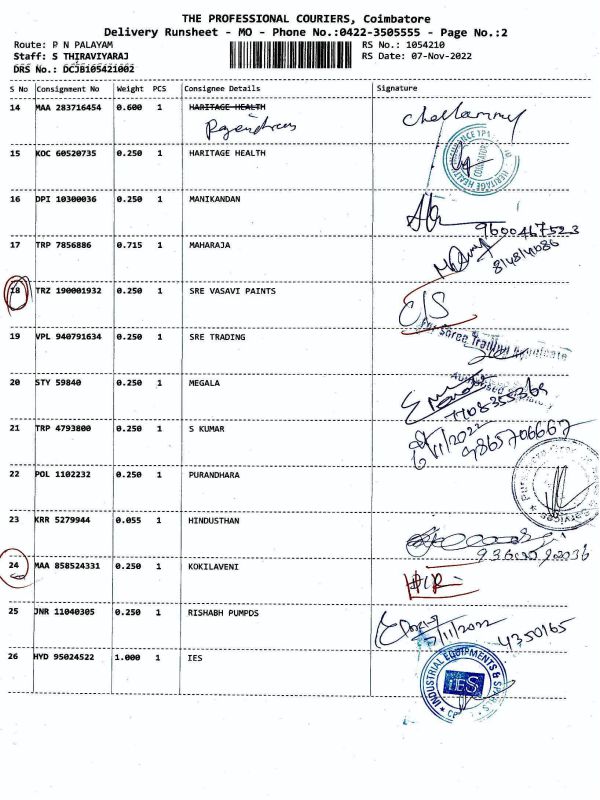 THE PROFESSIONAL COURIERS, Coimbatore
Delivery Runsheet - MO - Phone No.:0422-3505555 - Page No.:2
Route: P N PALAYAM RS No.: 1054210
Staff: S THIRAVIYARAJ RS Date: 07-Nov-2022
DRS No.: DCJB105421002
S No Consignment No Weight PCS Consignee Details Signature
14 MAA 283716454 0.600 1 HARITAGE HEALTH
15 KOC 60520735 0.250 1 HARITAGE HEALTH
16 DPI 10300036 0.250 1 MANIKANDAN
9600467523
17 TRP 7856886 0.715 1 MAHARAJA
18 TRZ 190001932 0.250 1 SRE VASAVI PAINTS
C/S
19 VPL 940791634 0.250 1 SRE TRADING
For Shree Trading
20 STY 59840 0.250 1 MEGALA
21 TRP 4793800 0.250 1 S KUMAR
9865706667
22 POL 1102232 0.250 1 PURANDHARA
23 KRR 5279944 0.055 1 HINDUSTHAN
24 MAA 858524331 0.250 1 KOKILAVENI
25 JNR 11040305 0.250 1 RISHABH PUMPDS
4350165
26 HYD 95024522 1.000 1 IES
INDUSTRIAL EQUIPMENTS &
IES